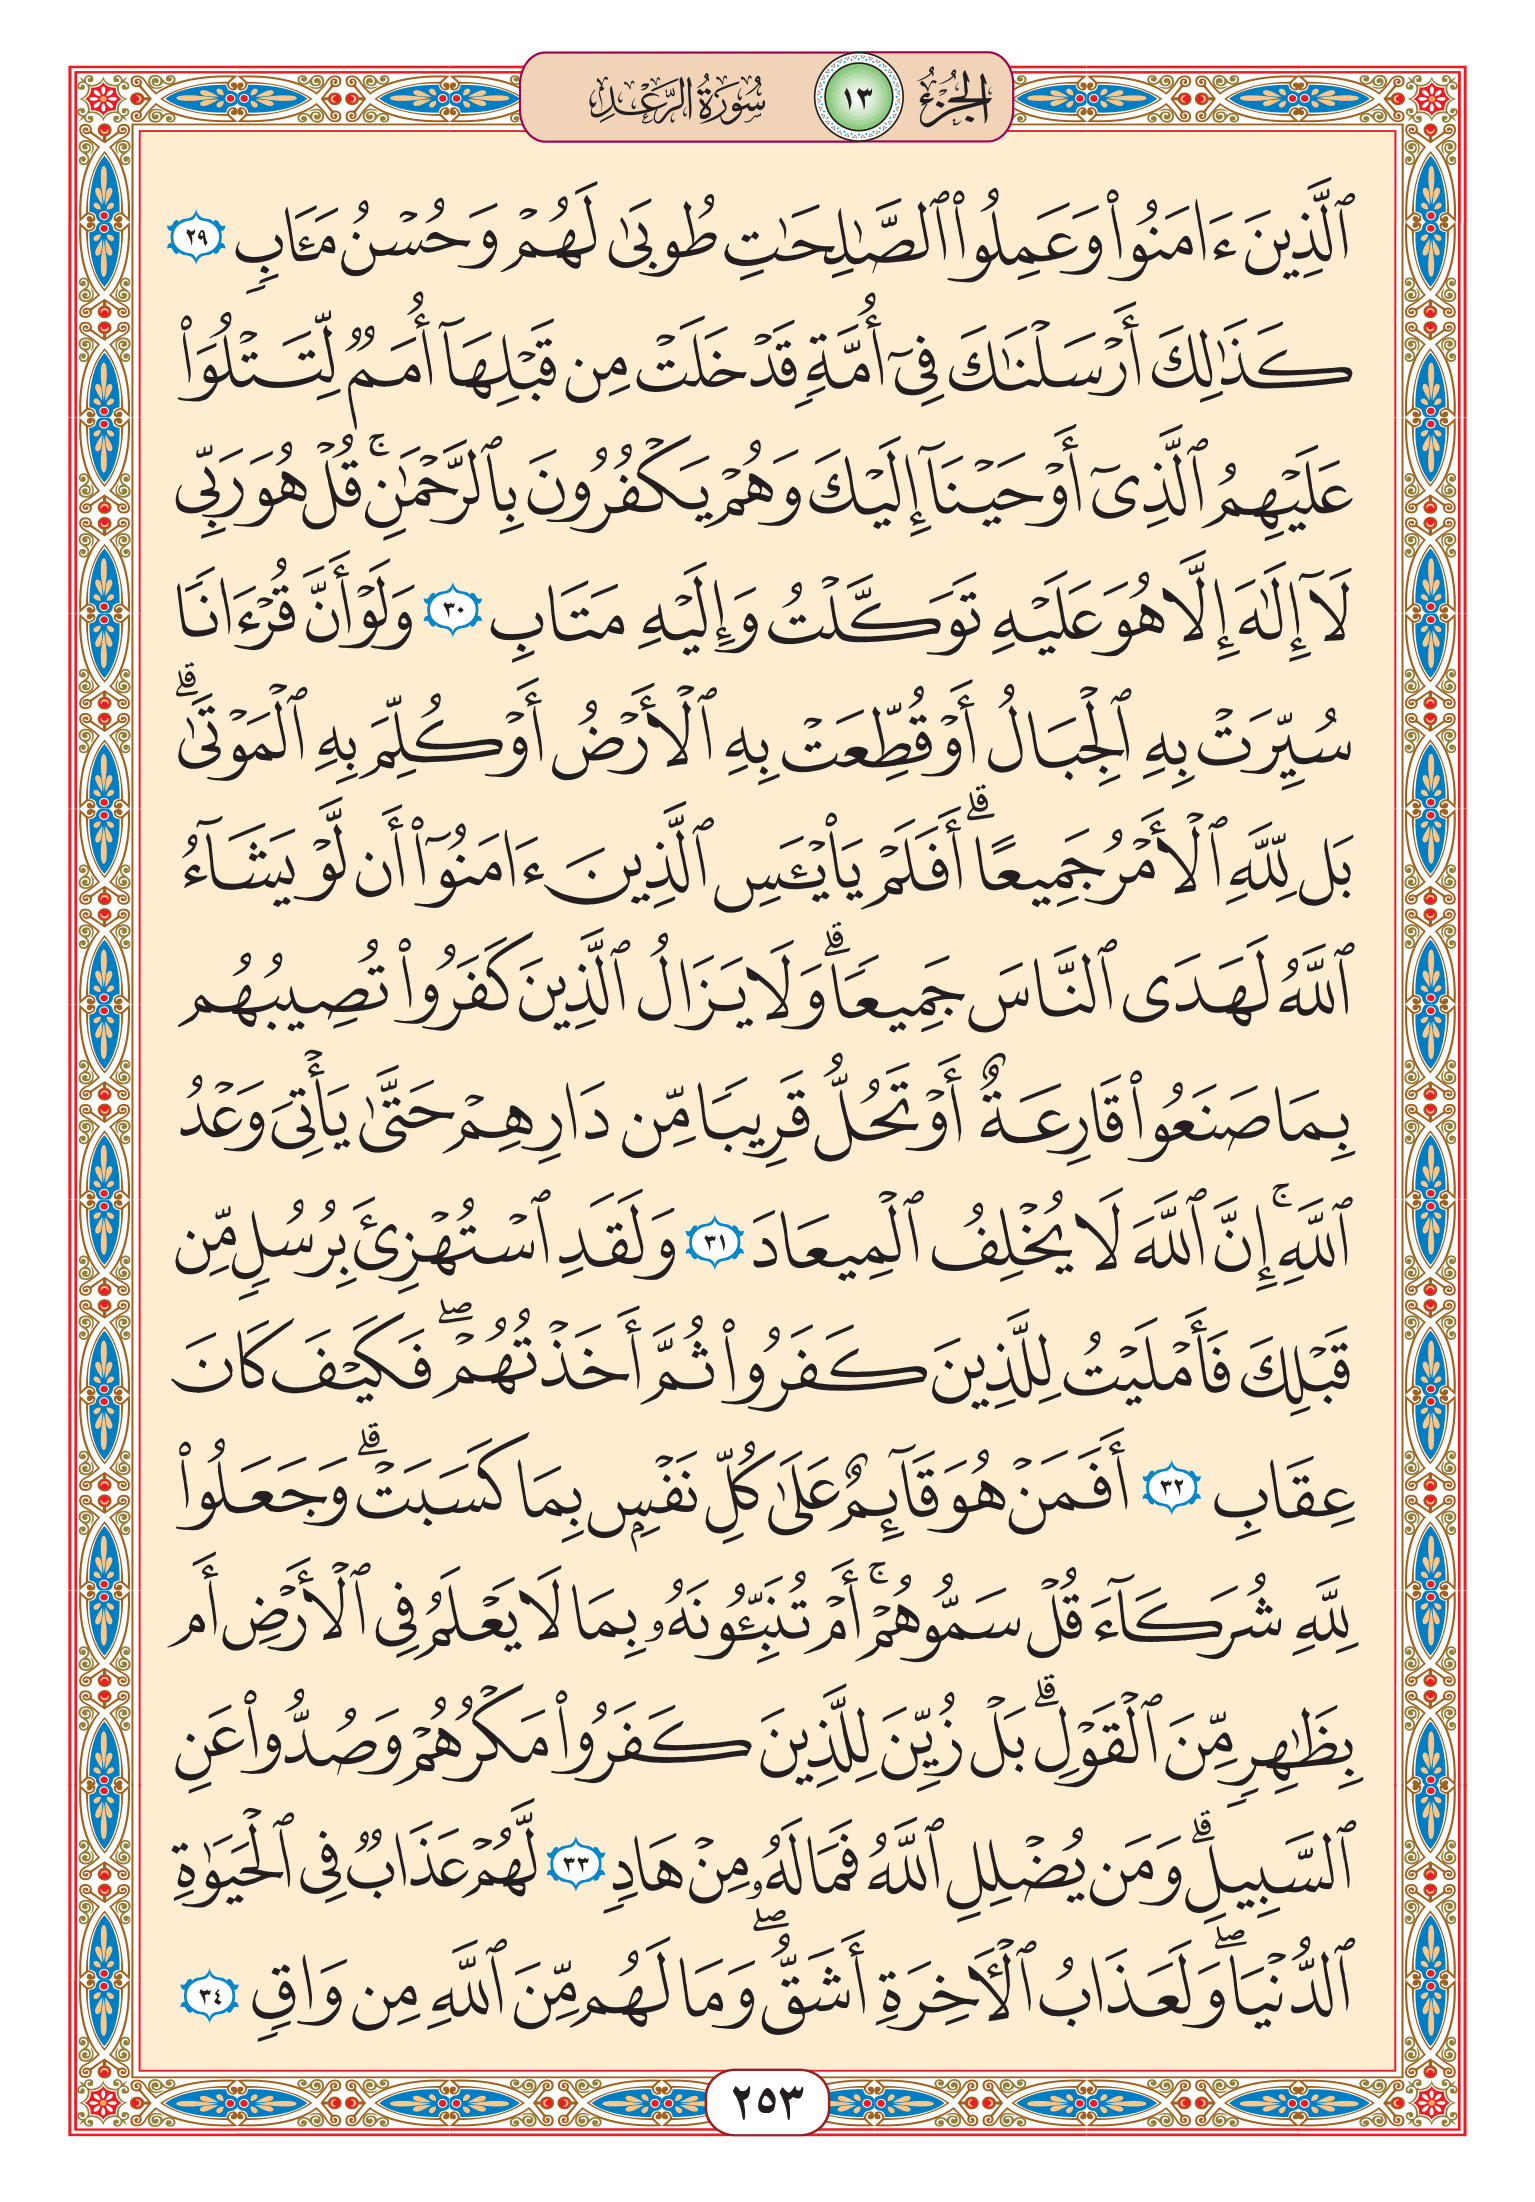 الجزء ١٣ سورة الرعد
ٱلَّذِينَ ءَامَنُواْ وَعَمِلُواْ ٱلصَّٰلِحَٰتِ طُوبَىٰ لَهُمْ وَحُسْنُ مَـَٔابٖ ٢٩
كَذَٰلِكَ أَرْسَلْنَٰكَ فِيٓ أُمَّةٖ قَدْ خَلَتْ مِن قَبْلِهَآ أُمَمٞ لِّتَتْلُوَاْ
عَلَيْهِمُ ٱلَّذِيٓ أَوْحَيْنَآ إِلَيْكَ وَهُمْ يَكْفُرُونَ بِٱلرَّحْمَٰنِۚ قُلْ هُوَ رَبِّي
لَآ إِلَٰهَ إِلَّا هُوَ عَلَيْهِ تَوَكَّلْتُ وَإِلَيْهِ مَتَابِ ٣٠ وَلَوْ أَنَّ قُرْءَانٗا
سُيِّرَتْ بِهِ ٱلْجِبَالُ أَوْ قُطِّعَتْ بِهِ ٱلْأَرْضُ أَوْ كُلِّمَ بِهِ ٱلْمَوْتَىٰۗ
بَل لِّلَّهِ ٱلْأَمْرُ جَمِيعًاۗ أَفَلَمْ يَاْيْـَٔسِ ٱلَّذِينَ ءَامَنُوٓاْ أَن لَّوْ يَشَآءُ
ٱللَّهُ لَهَدَى ٱلنَّاسَ جَمِيعٗاۗ وَلَا يَزَالُ ٱلَّذِينَ كَفَرُواْ تُصِيبُهُم
بِمَا صَنَعُواْ قَارِعَةٌ أَوْ تَحُلُّ قَرِيبٗا مِّن دَارِهِمْ حَتَّىٰ يَأْتِيَ وَعْدُ
ٱللَّهِۚ إِنَّ ٱللَّهَ لَا يُخْلِفُ ٱلْمِيعَادَ ٣١ وَلَقَدِ ٱسْتُهْزِئَ بِرُسُلٖ مِّن
قَبْلِكَ فَأَمْلَيْتُ لِلَّذِينَ كَفَرُواْ ثُمَّ أَخَذْتُهُمْۖ فَكَيْفَ كَانَ
عِقَابِ ٣٢ أَفَمَنْ هُوَ قَآئِمٌ عَلَىٰ كُلِّ نَفْسِۭ بِمَا كَسَبَتْۗ وَجَعَلُواْ
لِلَّهِ شُرَكَآءَ قُلْ سَمُّوهُمْۚ أَمْ تُنَبِّـُٔونَهُۥ بِمَا لَا يَعْلَمُ فِي ٱلْأَرْضِ أَم
بِظَٰهِرٖ مِّنَ ٱلْقَوْلِۗ بَلْ زُيِّنَ لِلَّذِينَ كَفَرُواْ مَكْرُهُمْ وَصُدُّواْ عَنِ
ٱلسَّبِيلِۗ وَمَن يُضْلِلِ ٱللَّهُ فَمَا لَهُۥ مِنْ هَادٖ ٣٣ لَّهُمْ عَذَابٞ فِي ٱلْحَيَوٰةِ
ٱلدُّنْيَاۖ وَلَعَذَابُ ٱلْأٓخِرَةِ أَشَقُّۖ وَمَا لَهُم مِّنَ ٱللَّهِ مِن وَاقٖ ٣٤
٢٥٣